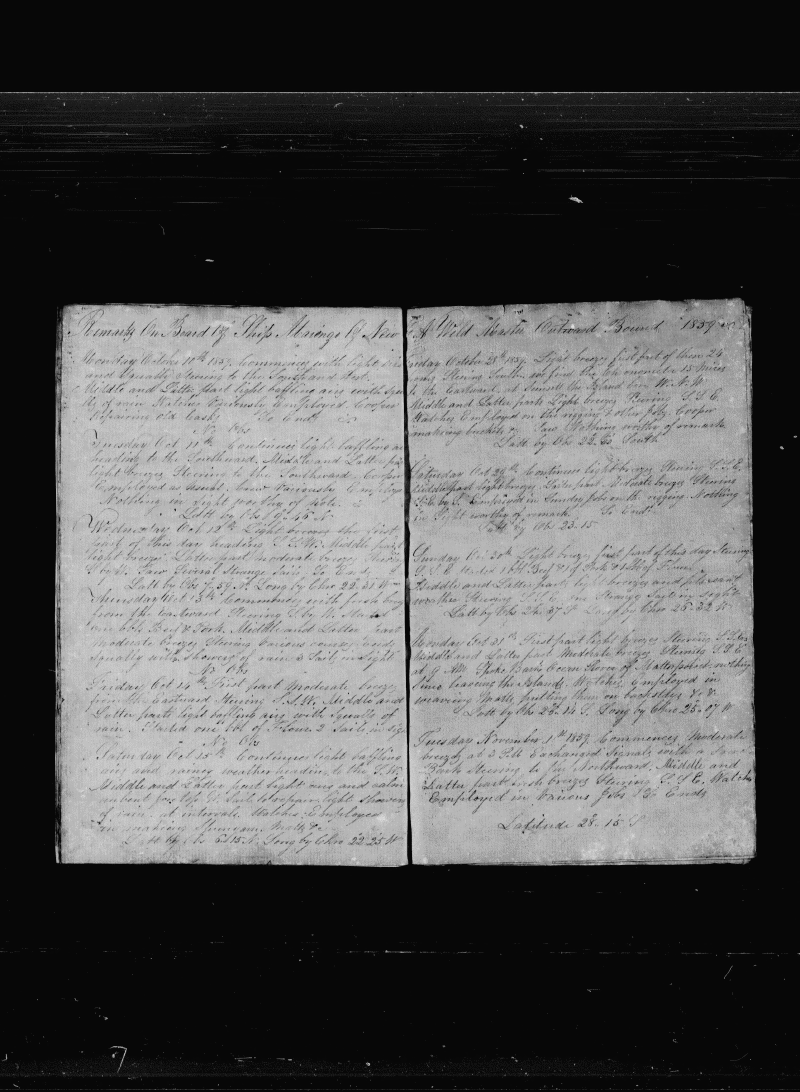 Remarks On Board of Ship Mirings of New
Monday October 10th 1859 Commences with light airs
and Variable Steering to the South and West
Middle and Latter part light baffling airs with squ
of rain Watches Variously Employed Cooper
repairing old Casks So Ends
No Obs
Tuesday Oct 11th Continues light baffling
heading to the Southward. Middle and Latter part
light breezes Steering to the Southward, Cooper
Employed as usual. Crew Variously Employed
Nothing in sight worthy of note.
Latt by Obs 9.45 N
Wednesday Oct 12th Light breezes the first
part of this day heading S.S.W. Middle part
light breezes Latter part moderate breezes Steering
S by W. Saw Several Strange Sails So Ends
Latt by Obs 7.59 N. Long by Chro 22.31 W
Thursday Oct 13th Commences with fresh breeze
from the Eastward Steering S by W.
one bbl Beef & Pork. Middle and Latter part
moderate breezes Steering Various courses and
squally with Showers of rain 2 Sail in Sight
No Obs
Friday Oct 14th First part Moderate breezes
from the Eastward Steering S.S.W. Middle and
Latter parts light baffling airs with Squalls of
rain. Started one bbl of Flour 2 Sails in sight
No Obs
Saturday Oct 15th Continues light baffling
airs and rainy weather heading to the S.W.
Middle and Latter part light airs and calm
light Showers
of rain at intervals. Watches Employed
in making Spunyarn Matts &c
Latt by Obs 6.15 N. Long by Chro 22.25 W
A Wild Master Outward Bound 1859
Friday October 28th 1859. Light breezes first part of these 24
hours Steering South
to the Eastward. at Sunset the Island bore W.N.W
Middle and Latter parts Light breezes Steering S.S.E.
Watches Employed on the rigging & other Jobs Cooper
making buckets &c Saw Nothing worthy of remark
Latt by Obs 22.20 South
Saturday Oct 29th Continues light breezes Steering S.S.E.
Middle part light breezes Latter part Moderate breezes Steering
S.E. by S. Employed in Sundry Jobs on the rigging Nothing
in Sight worthy of remark So Ends
Latt by Obs 23.15
Sunday Oct 30th Light breezes first part of this day Steering
S.S.E. Started 1 bbl Beef & 1 of Pork & 1 bbl of Flour
Middle and Latter parts light breezes and pleasant
weather Steering S.S.E. one Strange Sail in sight
Latt by Obs 24.27 S Long by Chro 26.22 W
Monday Oct 31st First part light breezes Steering S.S.E.
Middle and Latter part Moderate breezes Steering S.S.E
at 9 AM Spoke Bark Ocean Rover of Mattapoisett nothing
since leaving the Islands, Watches Employed in
weaving Matts, putting them on backstays &c &
Latt by Obs 26.14 S. Long by Chro 25.07 W
Tuesday November 1st 1859. Commences moderate
breezes at 3 PM Exchanged Signals with a
Bark Steering to the Northward. Middle and
Latter part fresh breezes Steering S.S.E. Watches
Employed in Various Jobs So Ends
Latitude 28.15 S